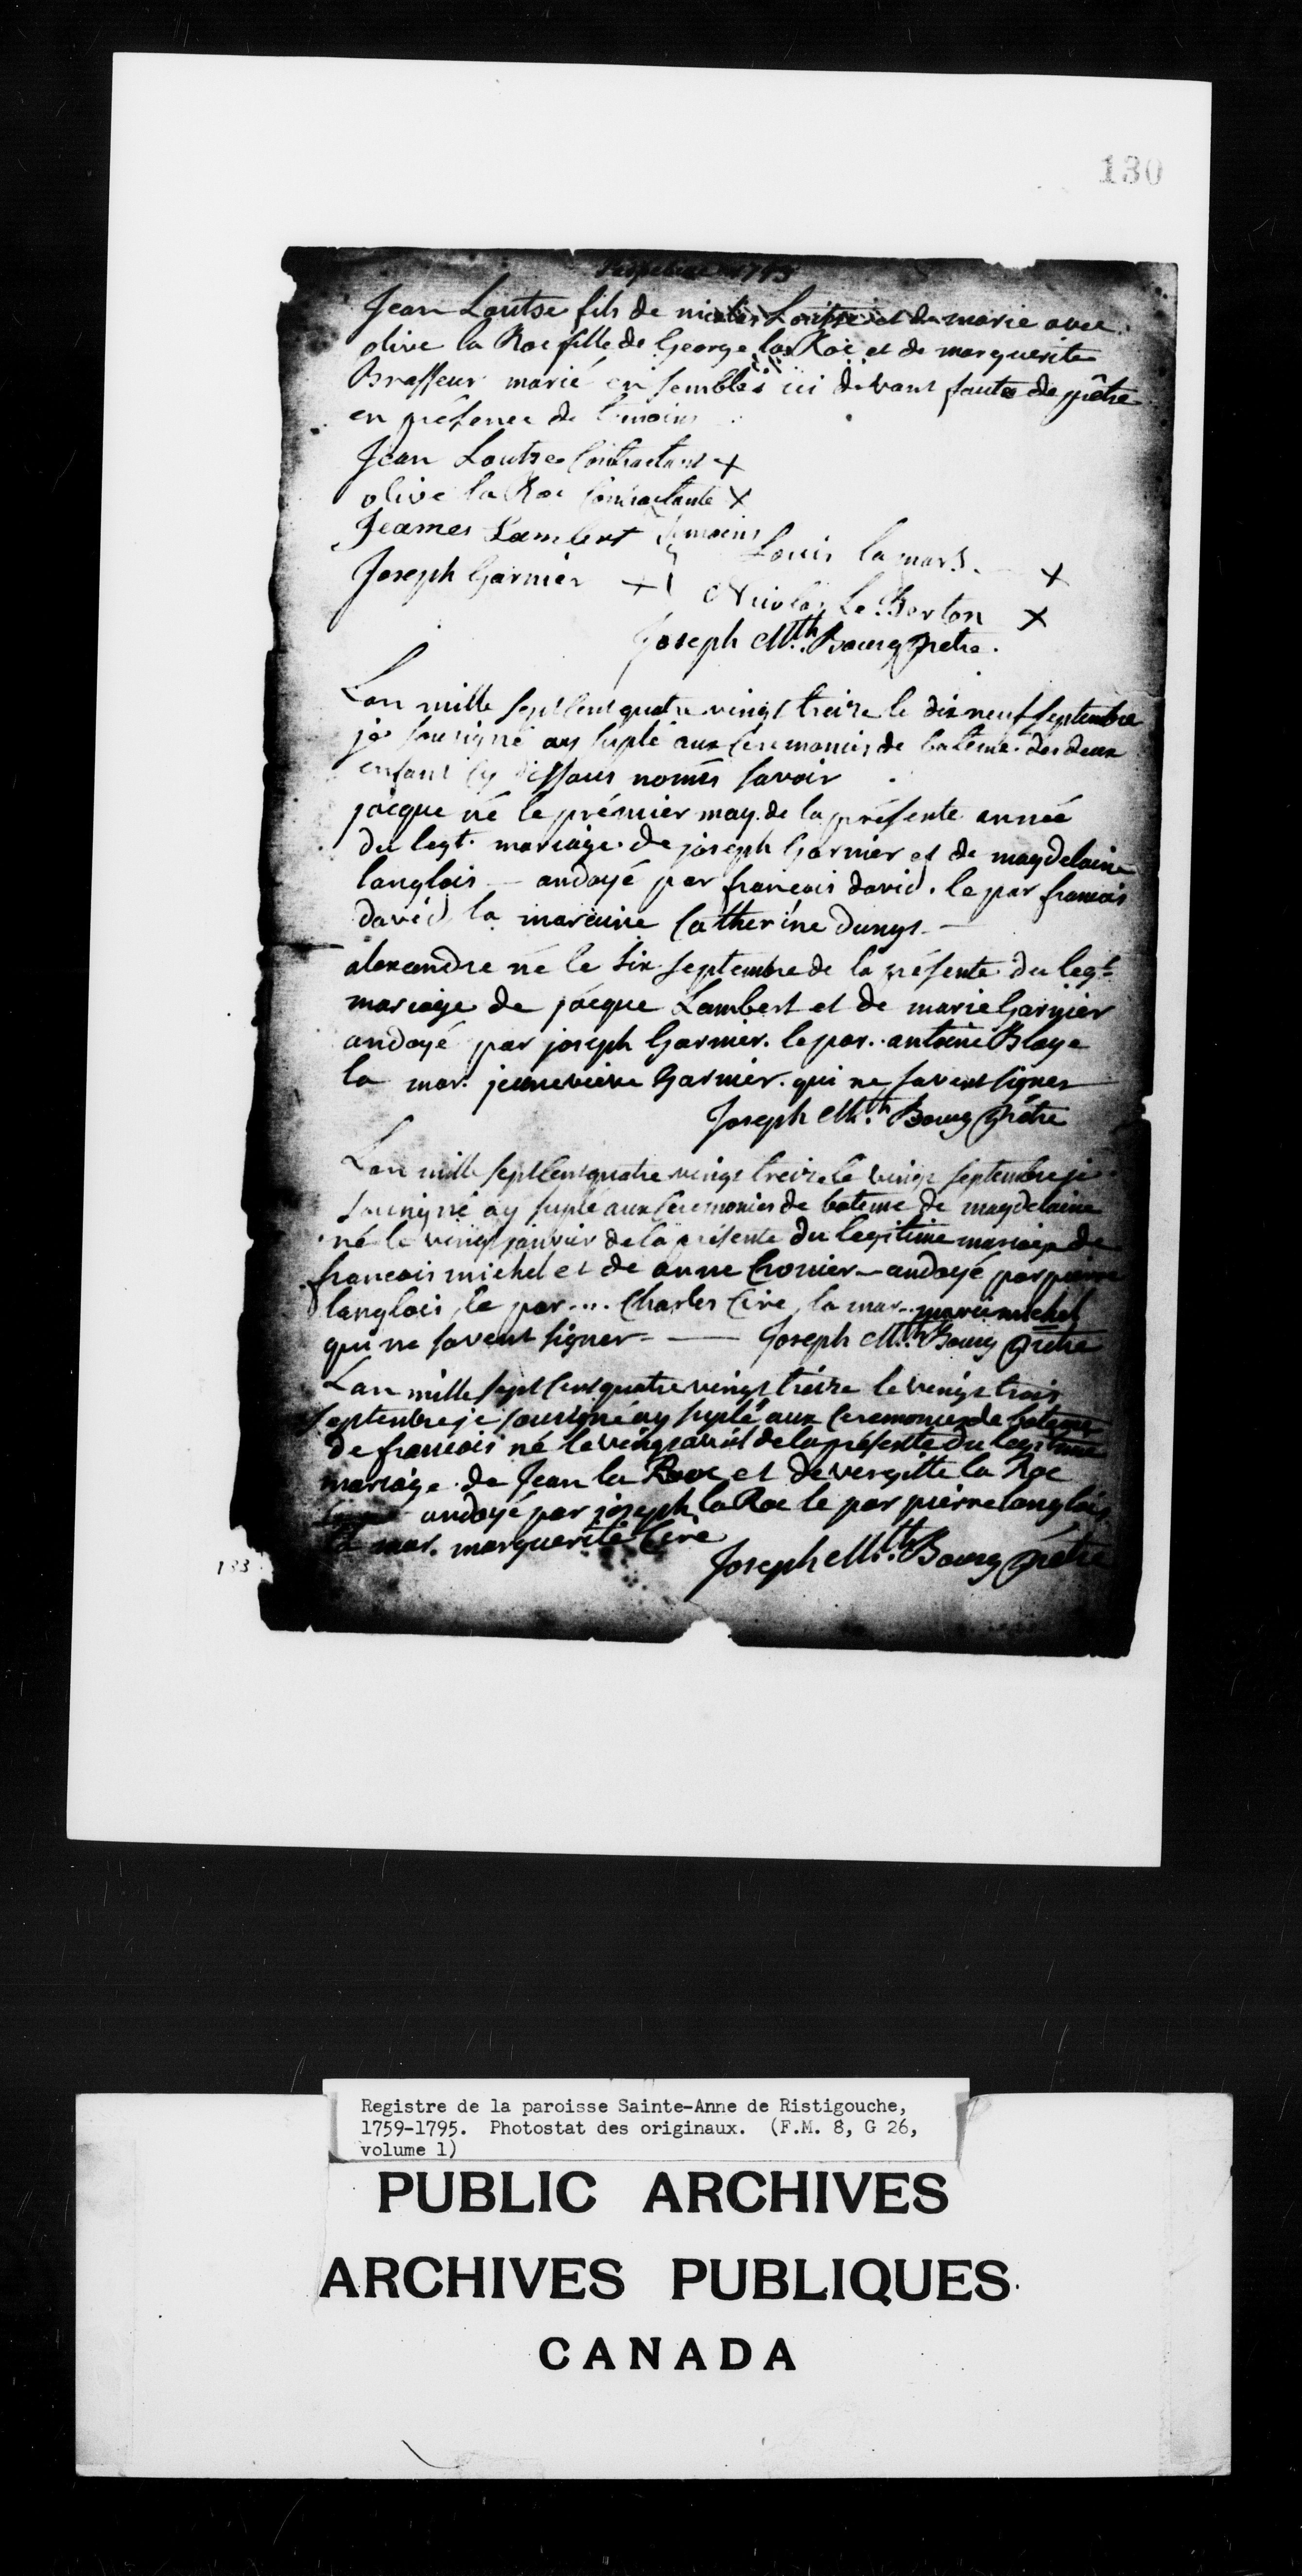 130
1793
Jean Loutse fils de nicolas Loutse et de marie avec
olive la Roc fille de George la Roc et de marguerite
Brasseur marié en sembles ici devant faute de prêtre
en présence de temoins
Jean Loutse Contractant X
olive la Roc Contractante X
Jeames Lambert temoins
Louis la mar X
Joseph Garnier X
Nicolas Le Breton X
Joseph Mth. Bourg prêtre.
Lan mille sept cent quatre vingt treize le dix neuf septembre
je sousigné ay suplé aux Ceremonies de batême des deux
enfant cy dessous només savoir
jacque né le prémier may de la présente année
du legt. mariage de joseph Garnier et de magdelaine
langlois — andoyé par francois david. le par francois
david la maraine Catherine dunys —
alexandre né le six septembre de la présente du legt.
mariage de jacque Lambert et de marie Garnier
andoyé par joseph Garnier. le par. antoine Blaye
la mar. jeunevieve Garnier. qui ne savent signer
Joseph Mth. Bourg prêtre
Lan mille sept Cent quatre vingt treize le vingt septembre je
sousigné ay suplé aux Ceremonies de bateme de magdelaine
né le vingt janvier de la présente du legitime mariage de
francois michel et de anne Cronier — andoyé par pierre
langlois, le par... Charles Cire, la mar.. marie michel
qui ne savent signer — Joseph Mth. Bourg prêtre
Lan mille sept Cent quatre vingt treize le vingt trois
septembre je sousigné ay suplé aux Ceremonies de bateme
de francois né le vingt avril de la présente du legitime
mariage de Jean la Roc et de vergitte la Roc
andoyé par joseph la Roc le par pierre langlois
la mar. marguerite Cire
Joseph Mth. Bourg prêtre
133
Registre de la paroisse Sainte-Anne de Ristigouche,
1759-1795. Photostat des originaux. (F.M. 8, G 26,
volume 1)
PUBLIC ARCHIVES
ARCHIVES PUBLIQUES
CANADA